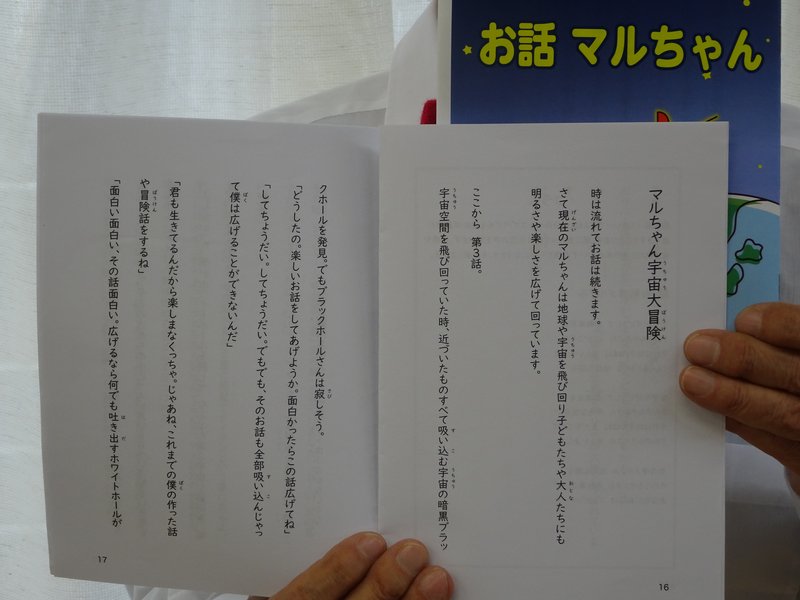 お話 マルちゃん
マルちゃん宇宙大冒険
時は流れてお話は続きます。
さて現在のマルちゃんは地球や宇宙を飛び回り子どもたちや大人たちにも
明るさや楽しさを広げて回っています。
ここから 第３話。
宇宙空間を飛び回っていた時、近づいたものすべて吸い込む宇宙の暗黒ブラッ
16
クホールを発見。でもブラックホールさんは寂しそう。
「どうしたの。楽しいお話をしてあげようか。面白かったらこの話広げてね」
「してちょうだい。してちょうだい。でもでも、そのお話も全部吸い込んじゃっ
て僕は広げることができないんだ」
「君も生きてるんだから楽しまなくっちゃ。じゃあね、これまでの僕の作った話
や冒険話をするね」
「面白い面白い、その話面白い。広げるなら何でも吐き出すホワイトホールが
17